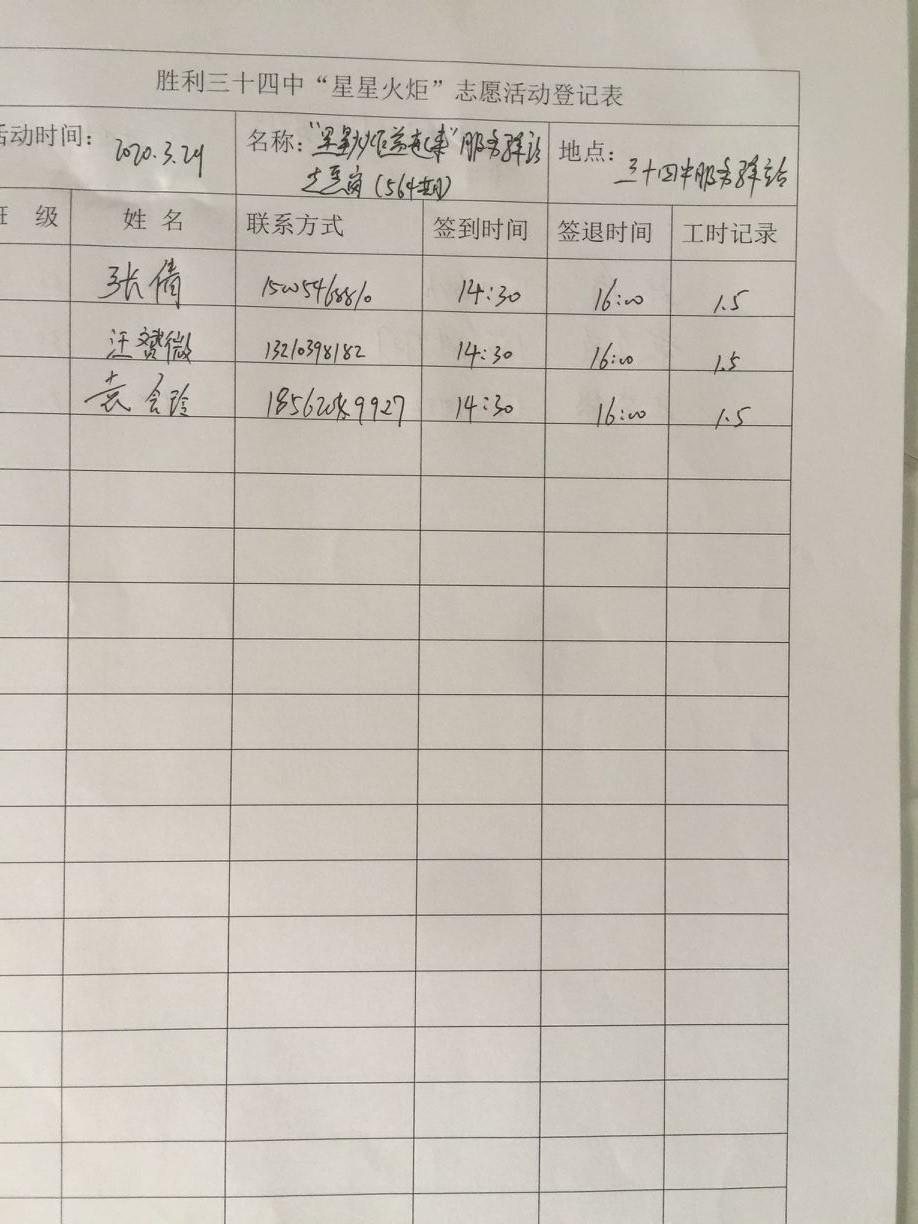 胜利三十四中“星星火炬”志愿活动登记表
活动时间: 2020.3.24 名称: “星星火炬益起来”服务驿站 地点: 三十四中服务驿站
志愿岗(564期)
班 级 姓 名 联系方式 签到时间 签退时间 工时记录
张倩 14:30 16:00 1.5
汪赟微 13210398182 14:30 16:00 1.5
袁会玲 14:30 16:00 1.5